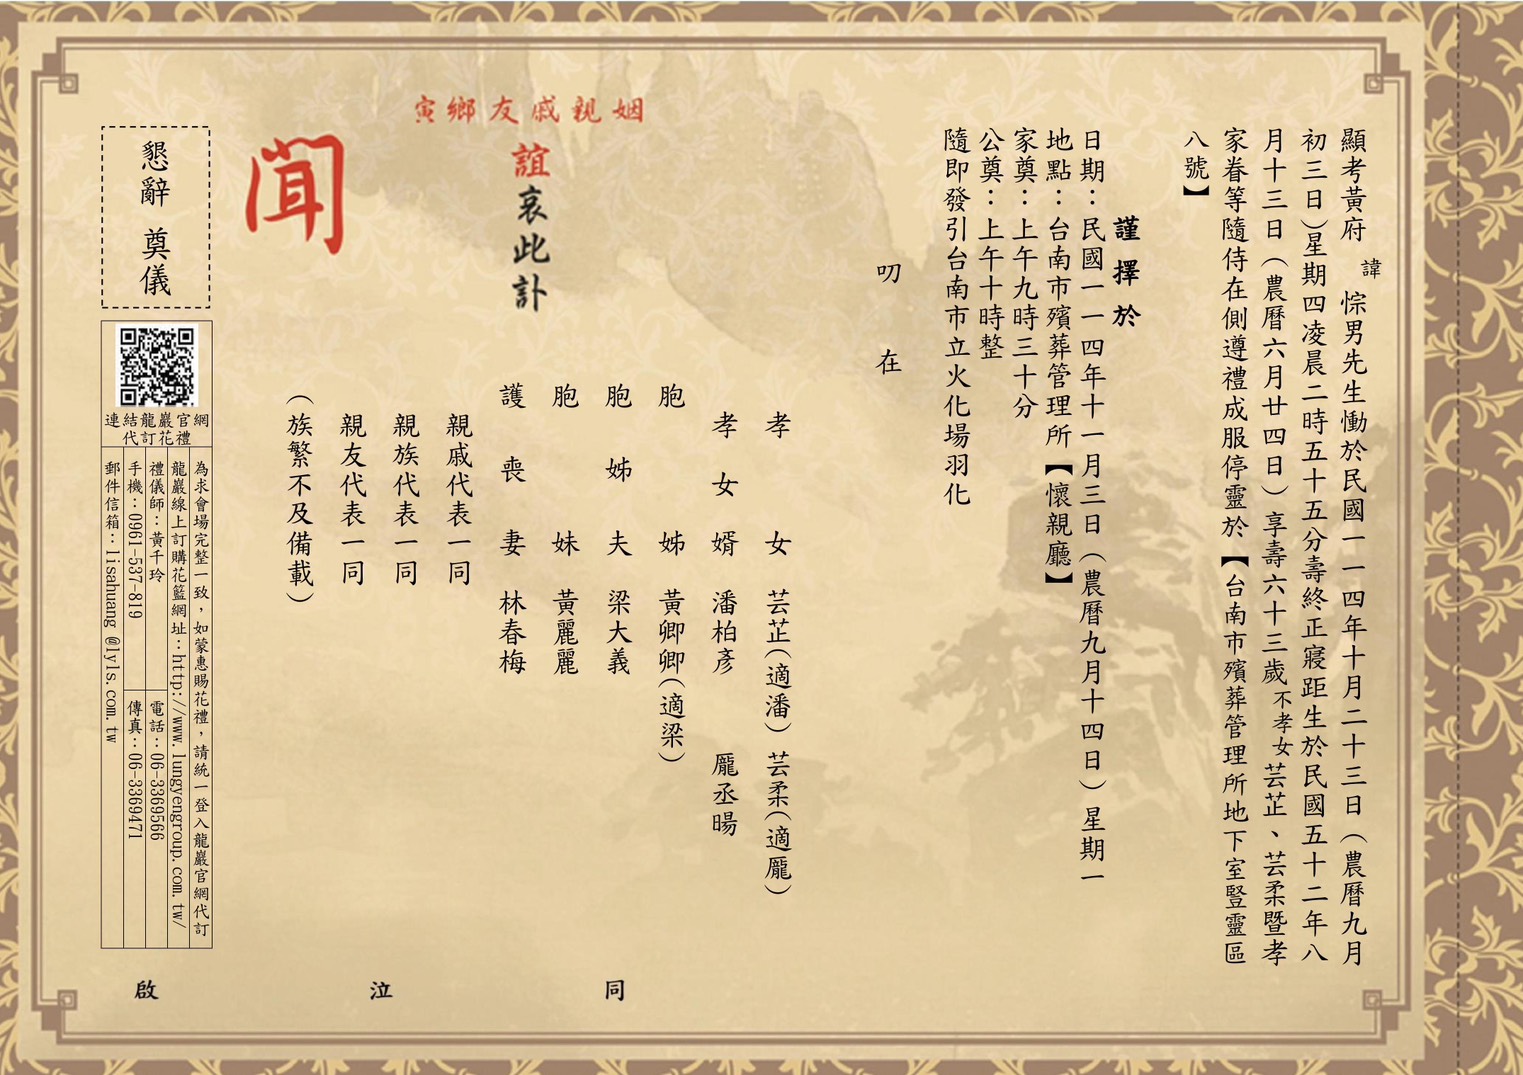 顯考黃府 諱 悰男先生慟於民國一一四年十月二十三日(農曆九月
初三日)星期四凌晨二時五十五分壽終正寢距生於民國五十二年八
月十三日(農曆六月廿四日)享壽六十三歲不孝女芸芷、芸柔暨孝
家眷等隨侍在側遵禮成服停靈於【台南市殯葬管理所地下室豎靈區
八號】
謹擇於
日期:民國一一四年十一月三日(農曆九月十四日)星期一
地點:台南市殯葬管理所【懷親廳】
家奠:上午九時三十分
公奠:上午十時整
隨即發引台南市立火化場羽化
叨在
姻親戚友鄉寅
誼哀此訃
聞
孝女 芸芷(適潘) 芸柔(適龎)
孝女婿 潘柏彥 龎丞暘
胞姊 黃卿卿(適梁)
胞姊夫 梁大義
胞妹 黃麗麗
護喪妻 林春梅
親戚代表一同
親族代表一同
親友代表一同
(族繁不及備載)
同泣啟
懇辭 奠儀
連結龍巖官網
代訂花禮
為求會場完整一致,如蒙惠賜花禮,請統一登入龍巖官網代訂
龍巖線上訂購花籃網址:http://www.lungyengroup.com.tw/
禮儀師:黃千玲
電話:06-3369566
手機:0961-537-819
傳真:06-3369471
郵件信箱:lisahuang@lyls.com.tw